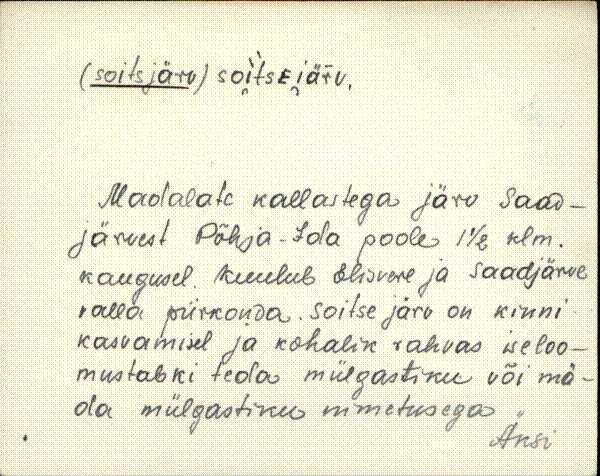 (soitsjärv) soi̯tsᴇi̯är̄v.
Madalate kallastega järv Saad-
järvest Põhja-Ida poole 1½ klm.
kaugusel. Kuulub Elisvere ja Saadjärve
valla piirkonda. Soitse järv on kinni
kasvamisel ja kohalik rahvas iseloo-
mustabki teda mülgastiku või mä-
da mülgastiku nimetusega
Äksi